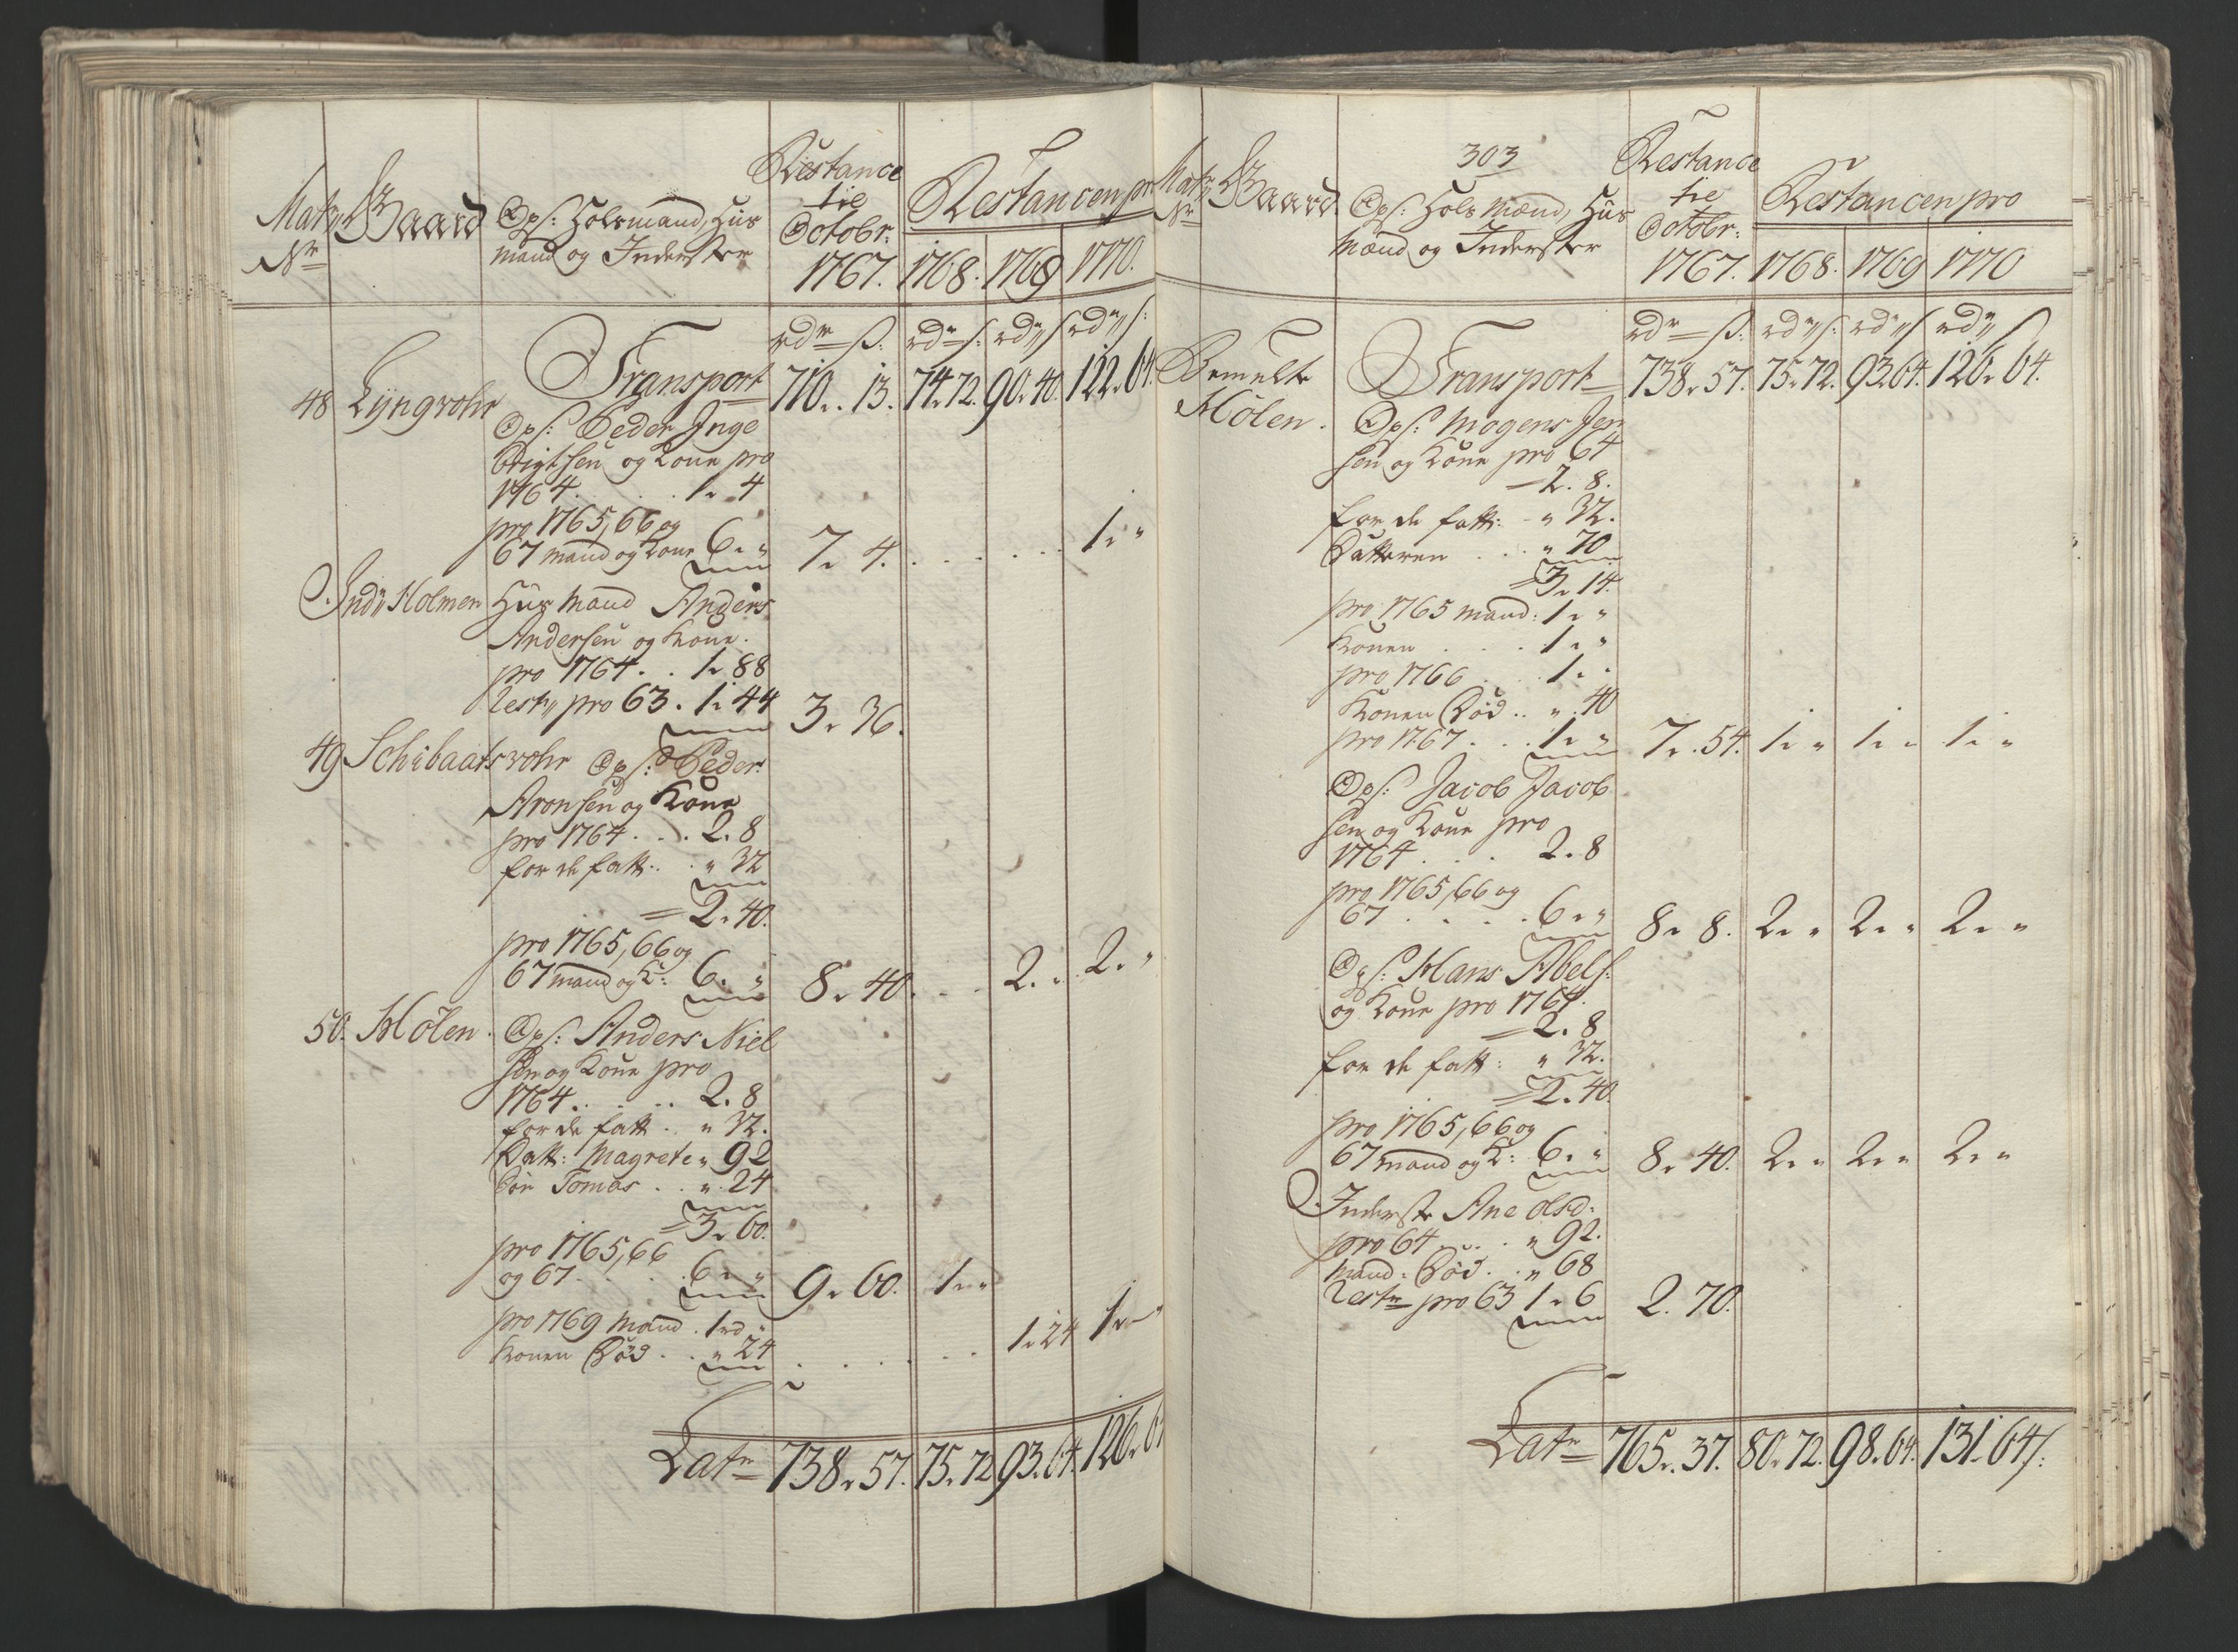 Matr„ Nr
Gaard
Ops: Holsmand, Huus
mand og Inderster
Restance
til
Octobr:
1767.
Restancen pr
1768. 1769 1770.
rdr ß: rdr ß: rdr„ ß rdr„ ß:
Transport 710. 13. 74. 72. 90. 40. 122. 64.
48 Lyngrohr
Ops: Peder Inge
brigtsen og Kone pro
1764. . . . 1. 4
pro 1765, 66 og
67 mand og Kone 6. „ 7. 4. . . . . 1. „
Ind„ Holmen Huus Mand Anders
Andersen og Kone.
pro 1764. . 1. 88
Rest„ pro 63. 1. 44 3. 36.
49 Schibaatsrohr Ops: Peder
Aronsen og Kone
pro 1764. . . 2. 8
for de fatt. . „ 32
= 2. 40.
pro 1765, 66 og
67 mand og K: 6. „ 8. 40. . . 2. „ 2. „
50. Hölen. Ops: Anders Niel
sen og Kone pro
1764. . . . 2. 8
for de fatt. . „ 32.
Datt: Magrete „ 92
Sön Tomas . . „ 24
= 3. 60.
pro 1765, 66
og 67. . . . 6. „ 9. 60. 1. „
pro 1769 Mand. 1 rd „
Konen Död. . „ 24 . . . . . 1. 24 1. „
Latr 738. 57. 75. 72 93. 64. 126. 64
303
Matr„ Nr
Gaard.
Ops: Hols Mænd, Huus
Mænd og Inderster
Restance
til
Octobr:
1767.
Restancen pro
1768. 1769 1770
rdr ß: rdr„ ß: rdr„ ß rdr„ ß
Bemelte Transport 738. 57. 75. 72. 93. 64. 126. 64.
Hölen.
Ops: Mogens Jen
sen og Kone pro 64
= 2. 8.
for de fatt: - „ 32.
Datteren . . . „ 70
= 3. 14.
pro 1765 mand: 1. „
Konen . . . . 1. „
pro 1766 . . . 1. „
Konen Död. . „ 40
pro 1767. . . 1. „ 7. 54. 1. „ 1. „ 1. „
Ops: Jacob Jacob
sen og Kone pro
1764 . . . 2. 8
pro 1765, 66 og
67 . . . . 6. „ 8. 8. 2. „ 2. „ 2. „
Ops: Hans Abels:
og Kone pro 1764.
= 2. 8
for de fatt: „ 32.
= 2. 40.
pro 1765, 66 og
67 mand og K: 6. „ 8. 40. 2. „ 2. „ 2. „
Inderste Ane Olsd:
pro 64 . . . „ 92.
Mand: Död. . „ 68
Restr pro 63 1. 6 2. 70.
Latr 765. 37. 80. 72. 98. 64. 131. 64 ß: